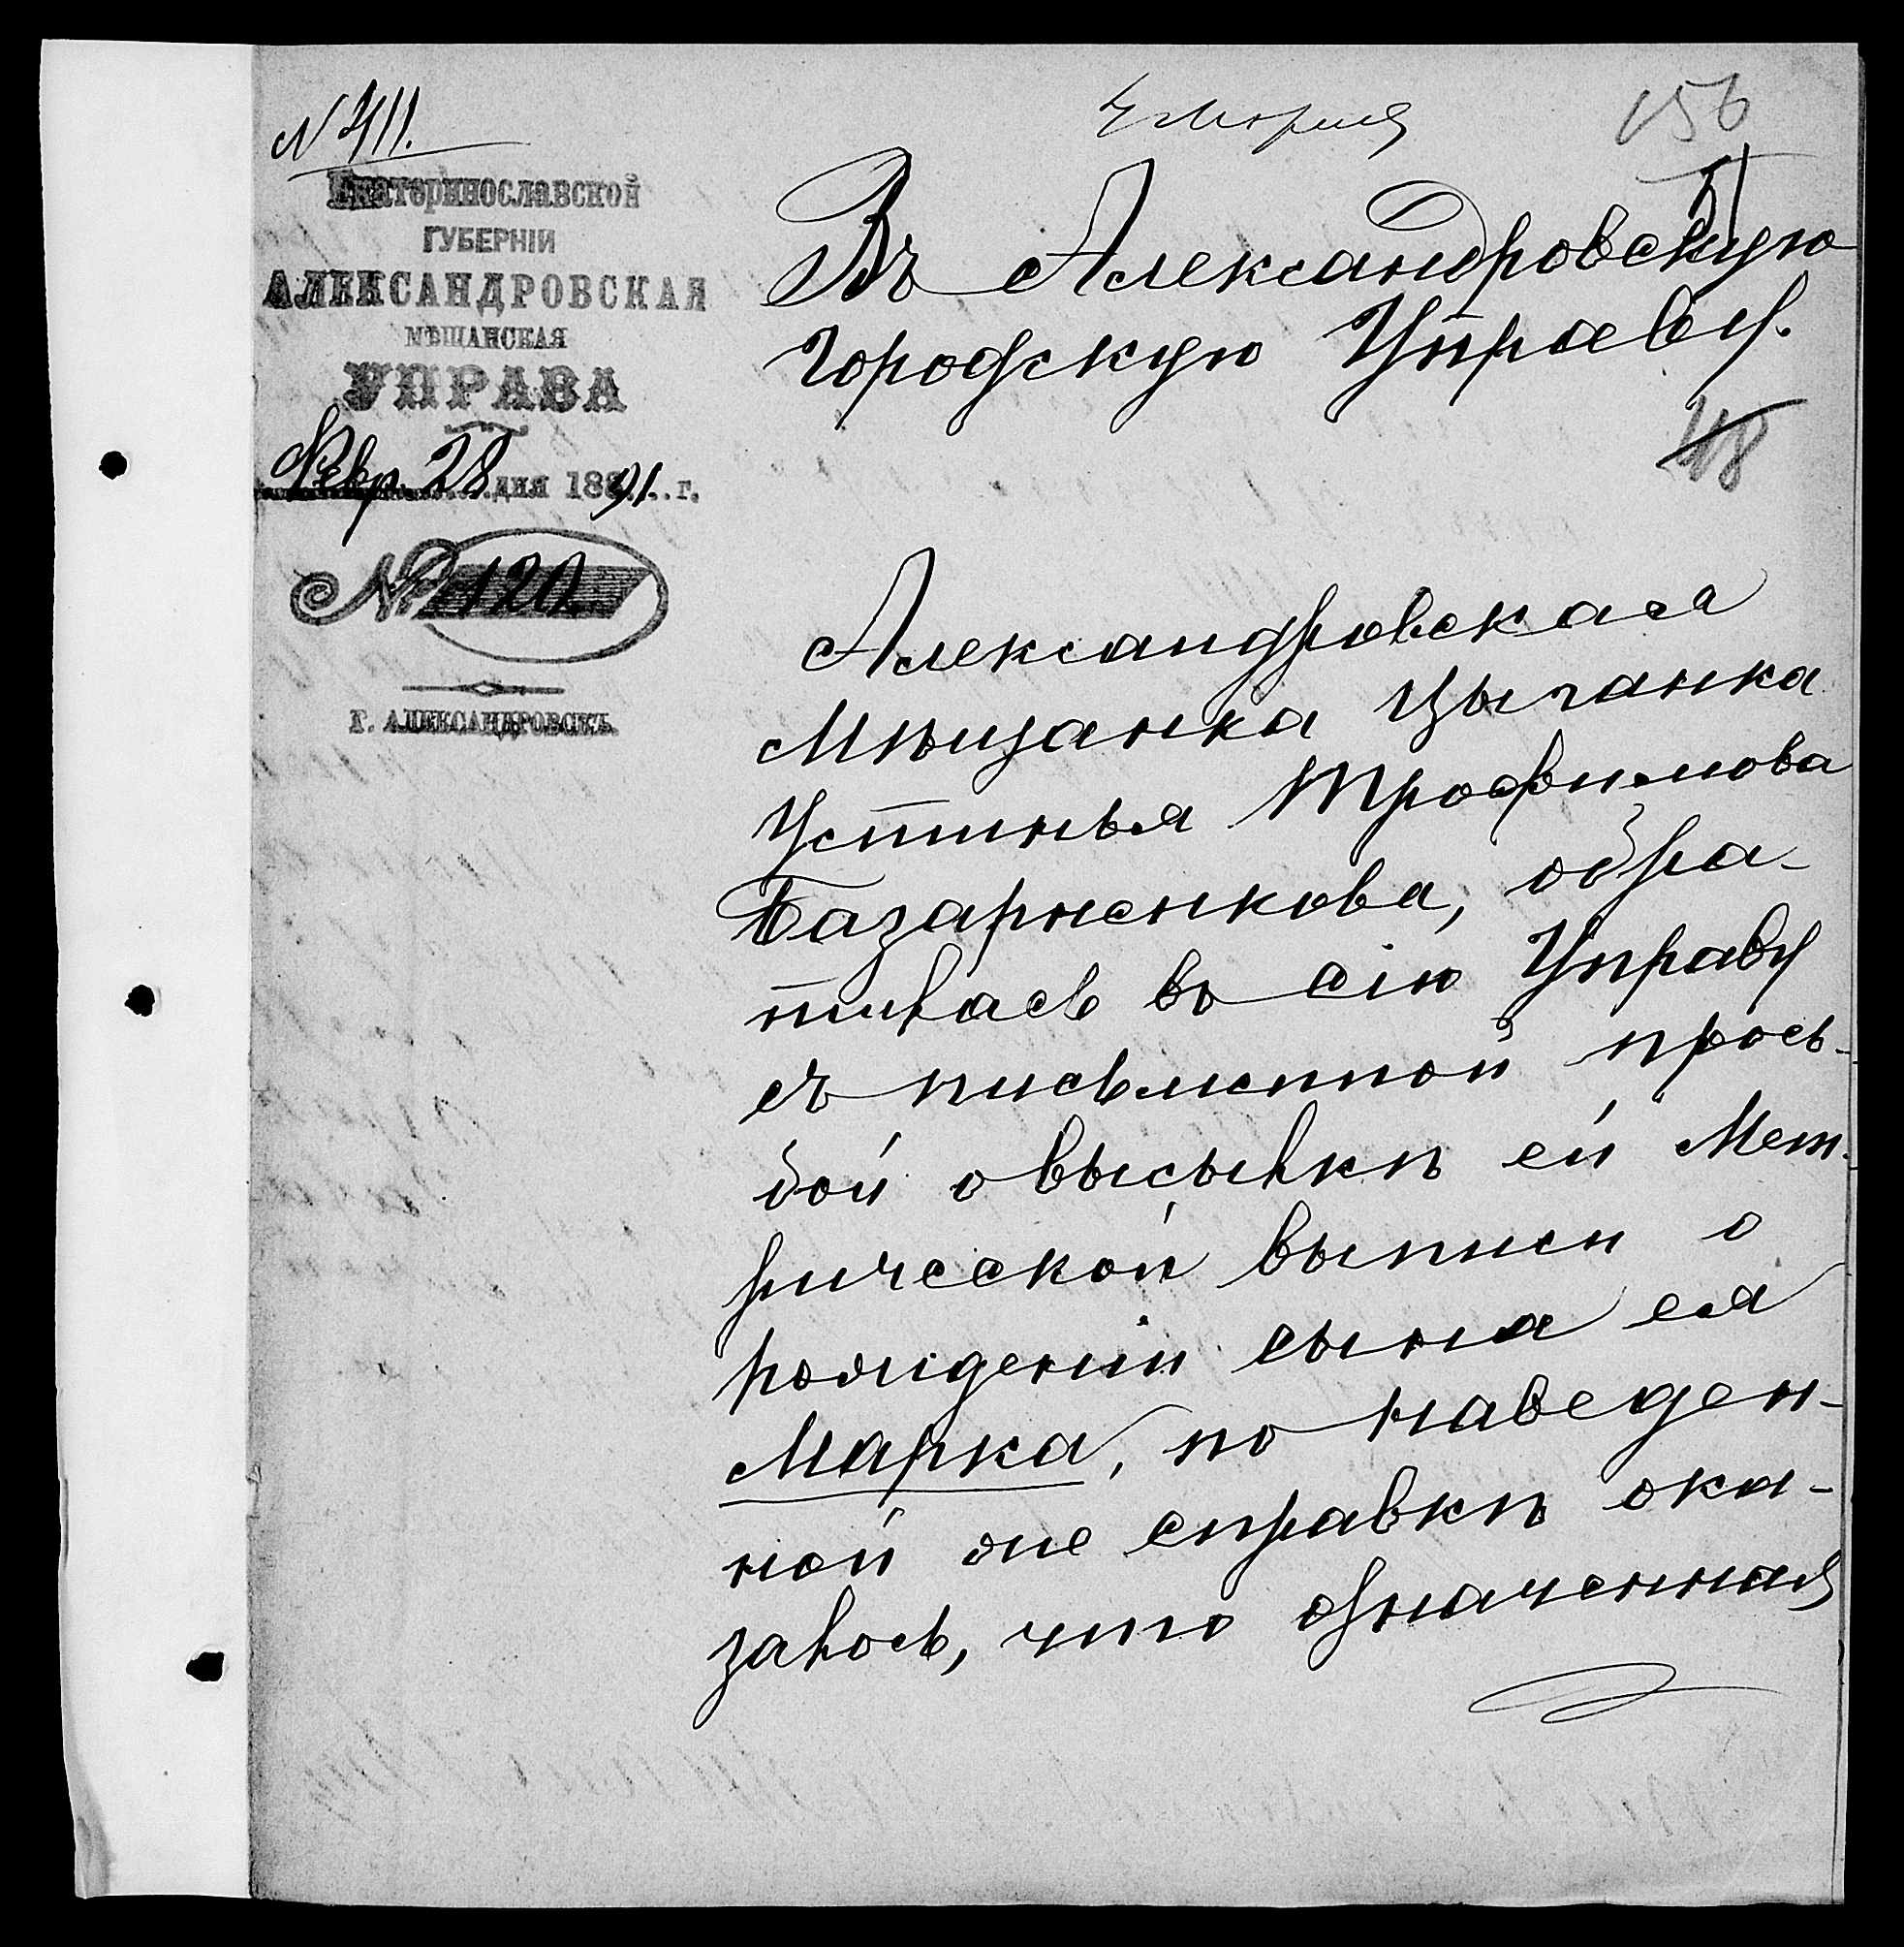 N 411.
Екатеринославской
ГУБЕРНІИ
АЛЕКСАНДРОВСКАЯ
МѢЩАНСКАЯ
УПРАВА
Февр. 28 дня 1891 г.
№ 120
Г. АЛЕКСАНДРОВСКЪ.
156
51
Въ Александровскую
Городскую Управу.
48
Александровская
Мѣщанка Цыганка
Устинья Трофимова
Базарненкова, обра-
тилась въ сію Управу
съ письменной прось-
бой о высылкѣ ей Мет-
рической выписи о
рожденіи сына ея
Марка, по наведен-
ной же справкѣ ока-
залось, что означенная